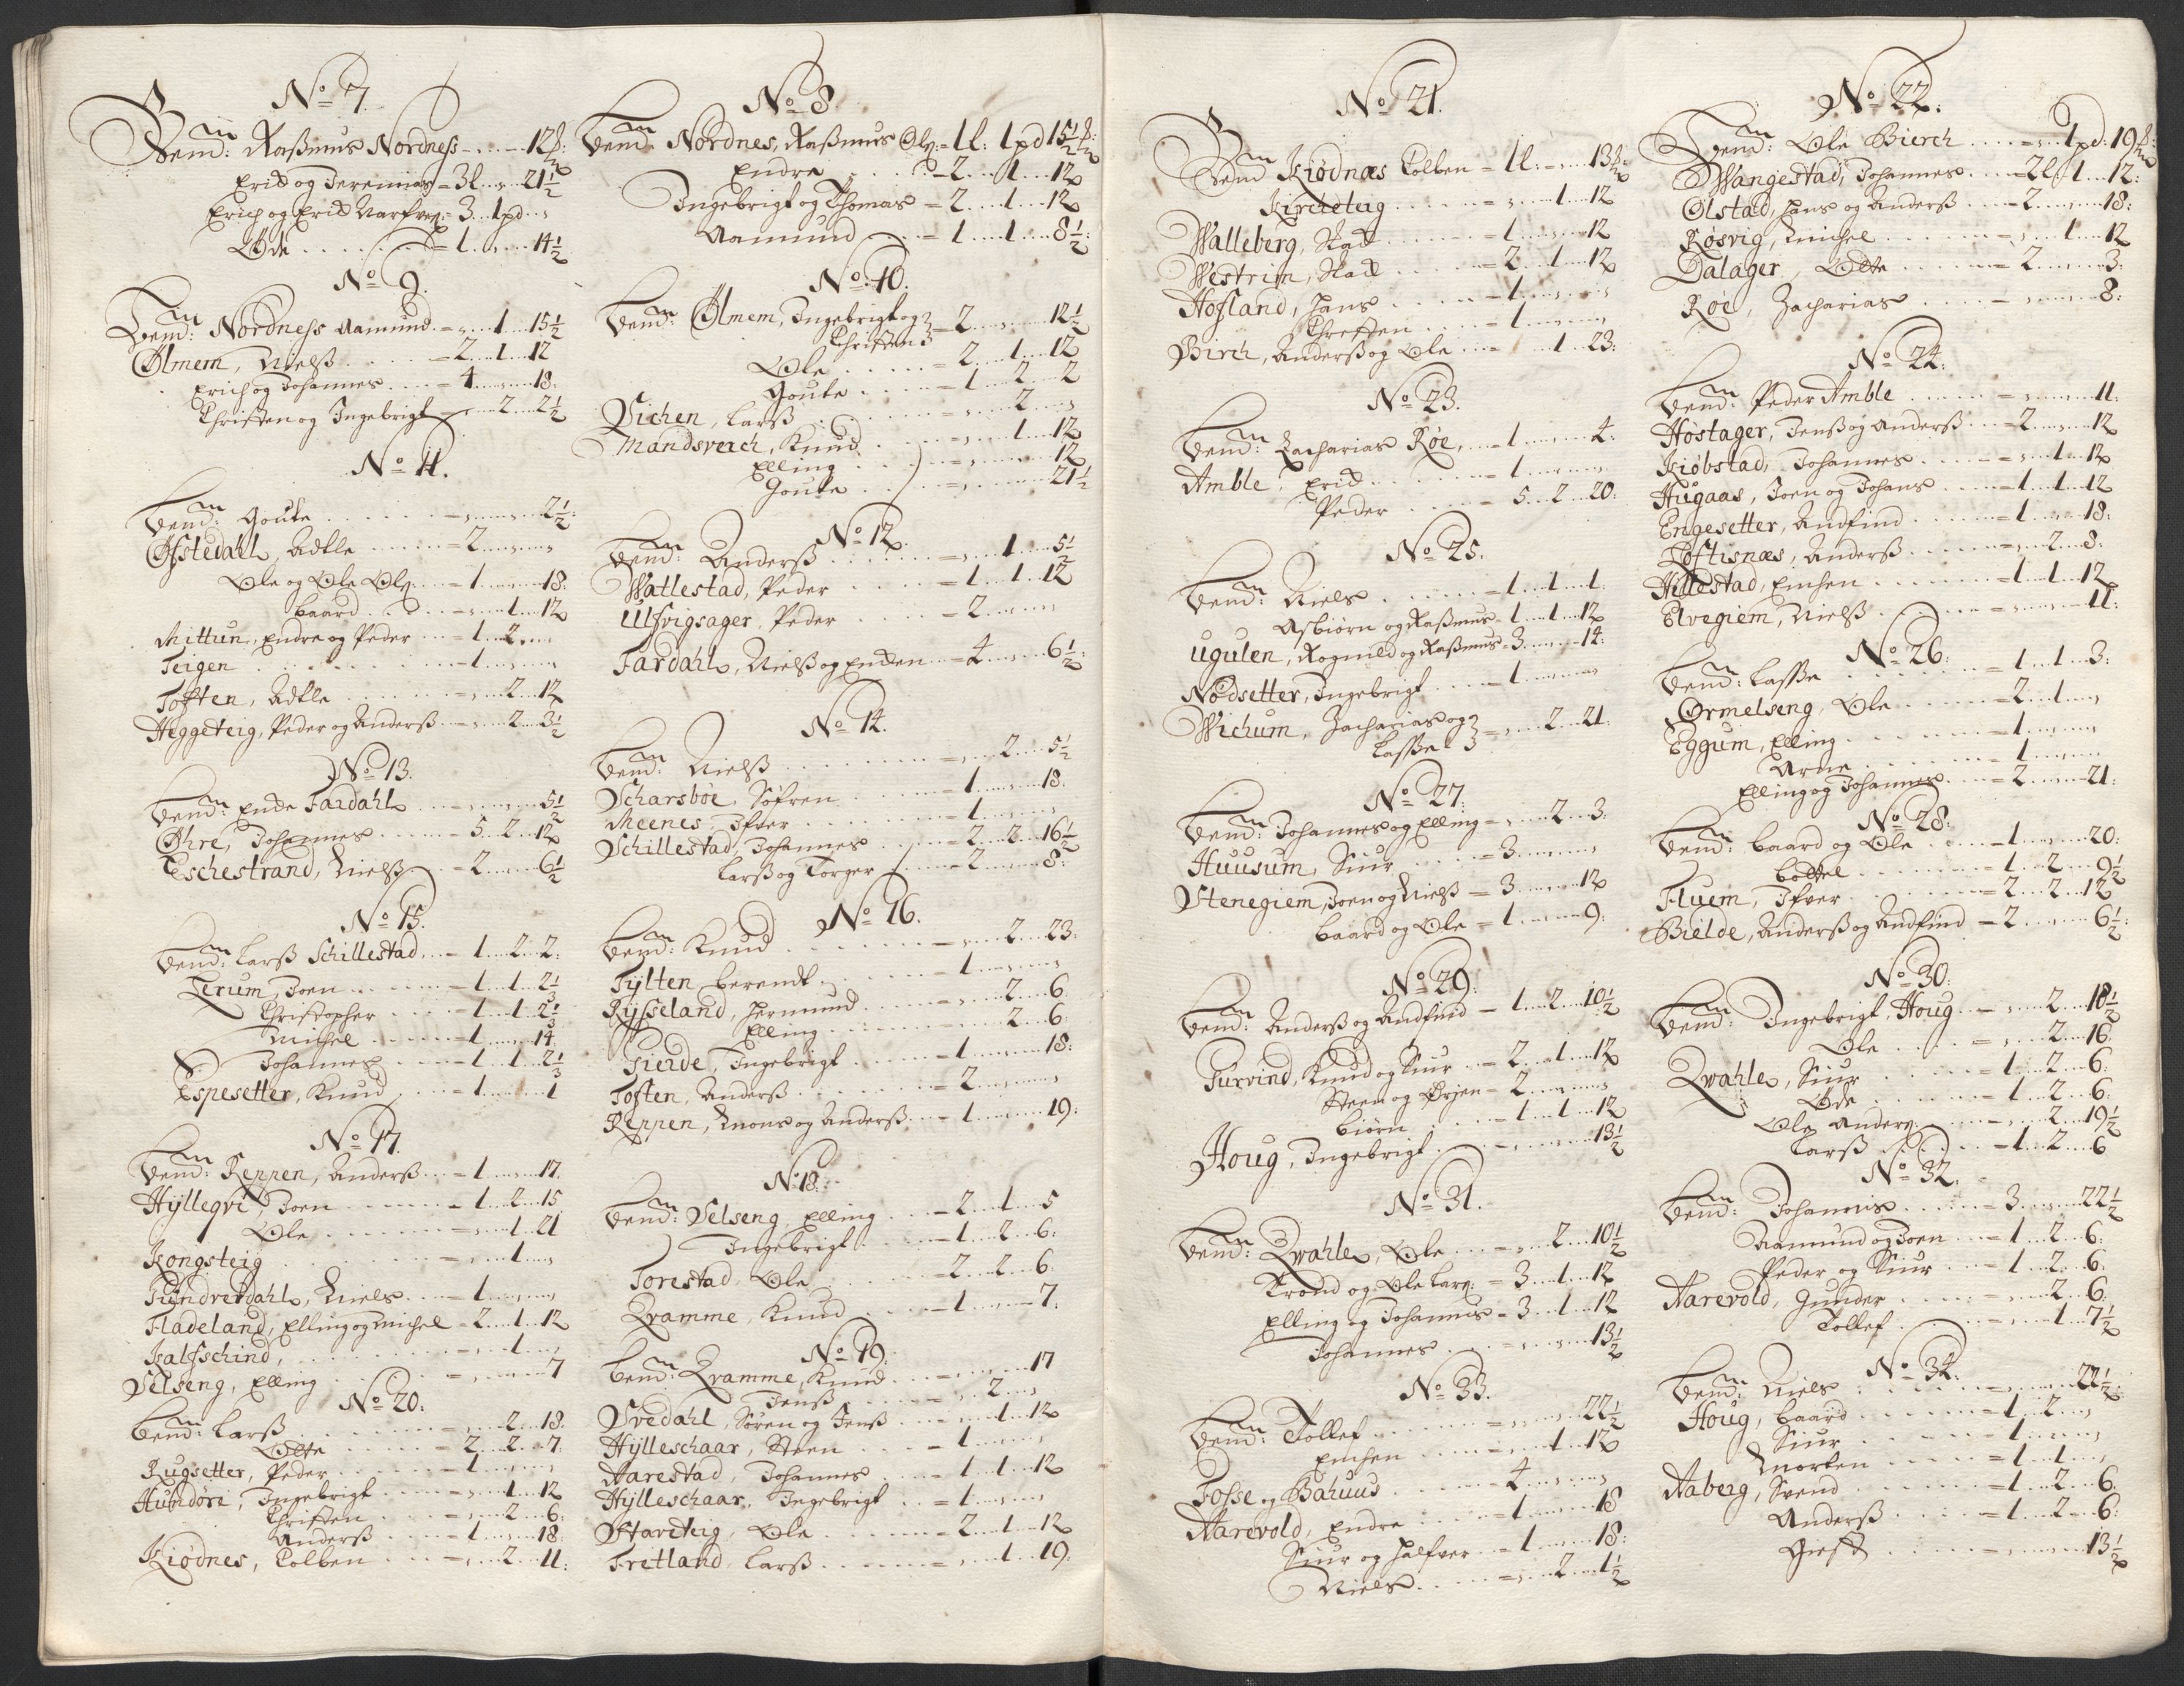 No 7.
Bemd: Raßmus Nordness - 12 ℔:
Erik og Jeremias = 3 l „ 21½
Erich og Erik Narfvez: = 3 „ 1 pd „
Øde = 1 „ 14½
No 9.
Bemd: Nordness Aamund = „ 1 15½
Ølmem, Nielß = 2 1 12
Erich og Johannes = 4 „ 18:
Christen og Ingebrigt = „ 2 2½
No 11.
bemd: Goute = „ „ 2½:
Øfstedahl, Adtle = 2 „ „
Ole og Ole Olß: = 1 „ 18:
baard = „ 1 12
Mittun, Endre og Peder = 1 2 „
Teigen = 1 „ „
Toften, Adtle = „ 2 12
Heggeteig, Peder og Anderß = „ 2 3½
No 13.
bemd: Ende Fardahl = „ „ 5½
Øhre, Johannes = 5 2 12
Eschestrand, Nielß = 2 „ 6½
No 15.
bemd: Larß Schillestad = 1 2 2:
Lerum, Joen = 1 1 2⅓
Christopher = 1 1 2⅓
Michel = 1 „ 14
Johannes = 1 1 2⅓
Espesetter, Knud = 1 „ 1
No 17.
bemd: Reppen, Anderß = 1 „ 17.
Hÿllegvi, Joen = 1 2 15
Ole = „ 1 21
Kongsteig = „ 1 „
Tundredahl, Niels = 1 „ „
Fladeland, Elling og Michel = 2 1 12
Kalfschind, = „ 1 „
Selseng, Elling = „ „ 7
No 20:
bemd: Larß = „ 2 18.
Otte = 2 2 7:
Rugsetter, Peder = 1 „ „
Hundøri, Ingebrigt = „ 1 12
Christen = „ 2 6:
Anderß = 1 „ 18:
Kiødnes, Colben = „ 2 11:
No 8.
bemd: Nordnes, Raßmus Olß: = 1 l: 1 pd 15½ ℔:
Endre = 2 1 12
Ingebrigt og Thomas = 2 1 12
Aamund = 1 1 8½:
No 10.
bemd: Ølmem, Ingebrigt og
Christen = 2 „ 12½
Ole = 2 1 12
Goute = 1 2 2
Vichen, Larß = „ 2 „
Mandsverch, Knud = „ 1 12
Elling = „ „ 12
Goute = „ „ 21½
No 12.
bemd: Anderß = „ 1 5½
Wattestad, Peder = 1 1 12
Ulfvigsager, Peder = 2 „ „
Fardahl, Nielß og Enden = 4 „ 6½:
No 14.
bemd: Nielß = „ 2 5½
Scharsbøe, Søfren = 1 „ 18.
Meenes, Ifver = 1 „ „
Schillestad, Johannes = 2 2 16½
Larß og Torger = 2 „ 8:
No 16.
bemd: Knud = „ 2 23:
Tÿlten, berendt = 1 „ „
Rÿsseland, Hermund = „ 2 6
Elling = „ 2 6:
Gierde, Ingebrigt = 1 „ 18:
Toften, Anderß = 2 „ „
Reppen, Mons og Anderß = 1 „ 19:
No 18:
bemd: Selseng, Elling = 2 1 5
Ingebrigt = 1 2 6:
Torestad, Ole = 2 2 6.
Qvamme, Knud = 1 „ 7.
No 19:
bemd: Qvamme, Knud = „ „ 17
Jenß = „ 2 „
Svedahl, Søren og Jenß = „ 1 12
Hÿlleschaar, Steen = 1 „ „
Aarestad, Johannes = 1 1 12
Hÿlleschaar, Ingebrigt = 1 „ „
Starcteig, Ole = 2 1 12
Fretland, Larß = „ 1 19:
No 21.
Bemd Kiødnæs Colben = 1 l: „ 13 ℔:
Kircheteig = „ 1 12
Walleberg, Stad = 1 „ 12
Westrim, Stad = 2 1 12
Hofland, Hans = 1 „ „
Chresten = 1 „ „
Birch, Anderß og Ole = 1 23:
No 23.
bemd: Zacharias Røe, = 1 „ 4:
Amble, Erik = 1 „ „
Peder = 5 2 20:
No 25.
bemd: Niels = 1 1 1.
Asbiørn og Raßmus = 1 1 12
Ugulen, Rognild og Raßmus = 3 „ 14:
Nødsetter, Ingebrigt = 1 „ „
Wichum, Zacharias og
Lasse = „ 2 21.
No 27:
bemd: Johannes og Elling = „ 2 3:
Huusum, Siur = 3 „ „
Stenegiem, Joen og Nielß = 3 „ 12
baard og Ole = 1 „ 9:
No 29:
bemd: Anderß og Andfind = 1 2 10½
Turvind, Knud og Siur = 2 1 12
Steen og Ørjen = 2 „ „
biørn = 1 1 12
Houg, Ingebrigt = „ „ 13½
No 31.
bemd: Qvahle, Ole = „ 2 10½
Trond og Ole Larß: = 3 1 12
Elling og Johannes = 3 1 12
Johannes = „ „ 13½
No 33.
bemd: Tollef = „ „ 22½
Emhen = „ 1 12
Fosse og Bahuus = 4 „ „
Aarevold, Endre = 1 „ 18
Siur og Halfver = 1 „ 18:
Niels = „ 2 1½
No 22:
Bemd: Ole Bierch = „ 1 pd: 19 ℔:
Wangestad, Johannes = 2 l: 1 12:
Ølstad, Hans og Anderß = 2 „ 18:
Røsvig, Michel = „ 1 12
Dalager, Otte = 2 „ 3:
Røe, Zacharias = „ „ 8:
No 24:
bemd: Peder Amble = „ „ 11:
Høstager, Jenß og Anderß = 2 „ 12
Kiøbstad, Johannes = „ 1 12
Hugaas, Joen og Johans = 1 1 12
Engesetter, Andfind = 1 „ 18:
Loftisnæs, Anderß = „ 2 8:
Hillestad, Emhen = 1 1 12
Elvegiem, Nielß = „ „ 11:
No 26:
bemd: Lasse = 1 1 3:
Ormelseng, Ole = 2 1 „
Eggum, Elling = 1 „ „
Arne = 1 „ „
Elling og Johannes = 2 „ 21:
No 28:
bemd: baard og Ole = 1 „ 20:
bottel = 1 2 9½
Fluem, Ifver = 2 2 12
Bielde, Anderß og Andfind = 2 „ 6½:
No 30:
bemd: Ingebrigt Houg = „ 2 18½
Ole = „ 2 16.
Qvahle, Siur = 1 2 6:
Øde = 1 2 6:
Ole Anderß: = „ 2 19½
Larß = 1 2 6
No 32.
bemd: Johannes = 3 „ 22½
Aamund og Joen = 1 2 6:
Peder og Siur = 1 2 6:
Aarevold, Gunder = „ 2 6
Tollef = „ 1 7½
No 34.
bemd: Niels = „ „ 22½
Houg, baard = 1 2 „
Siur = 1 „ „
Morten = 1 1 „
Aaberg, Svend = 1 2 6.
Anderß = 1 2 6:
Giest = „ „ 13½